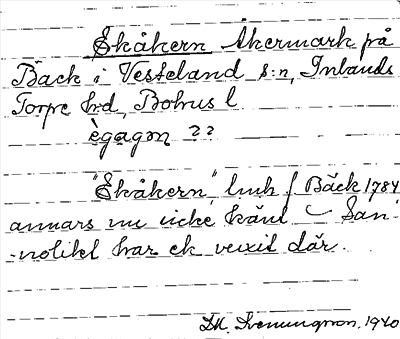 Ekåkern Åkermark på
Bäck i Vesteland s:n, Inlands
Torpe hrd, Bohus l.
ègagən ??
"Ekåkern" lmh f Bäck 1784
annars nu icke känt – San-
-nolikt har ek vuxit där.
1940